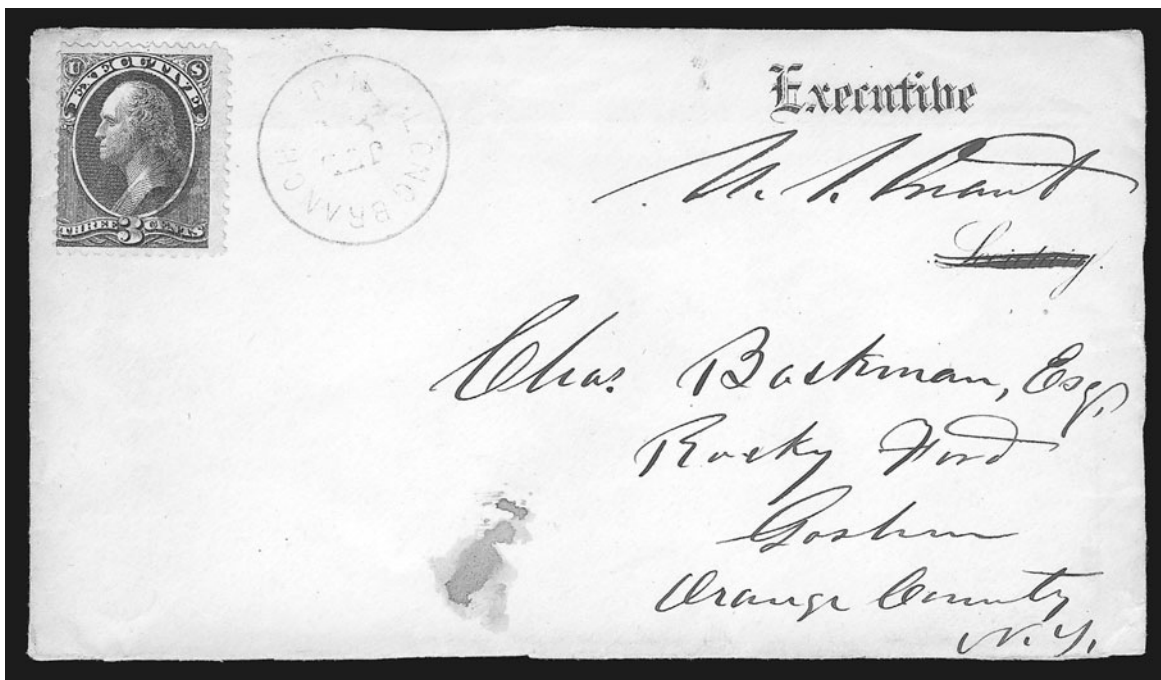 U S
EXECUTIVE
THREE 3 CENTS
LONG BRANCH
N.J.
Executive
U. S. Grant
Chas. Backman, Esq.
Rocky Ford
Goshen
Orange County
N. Y.